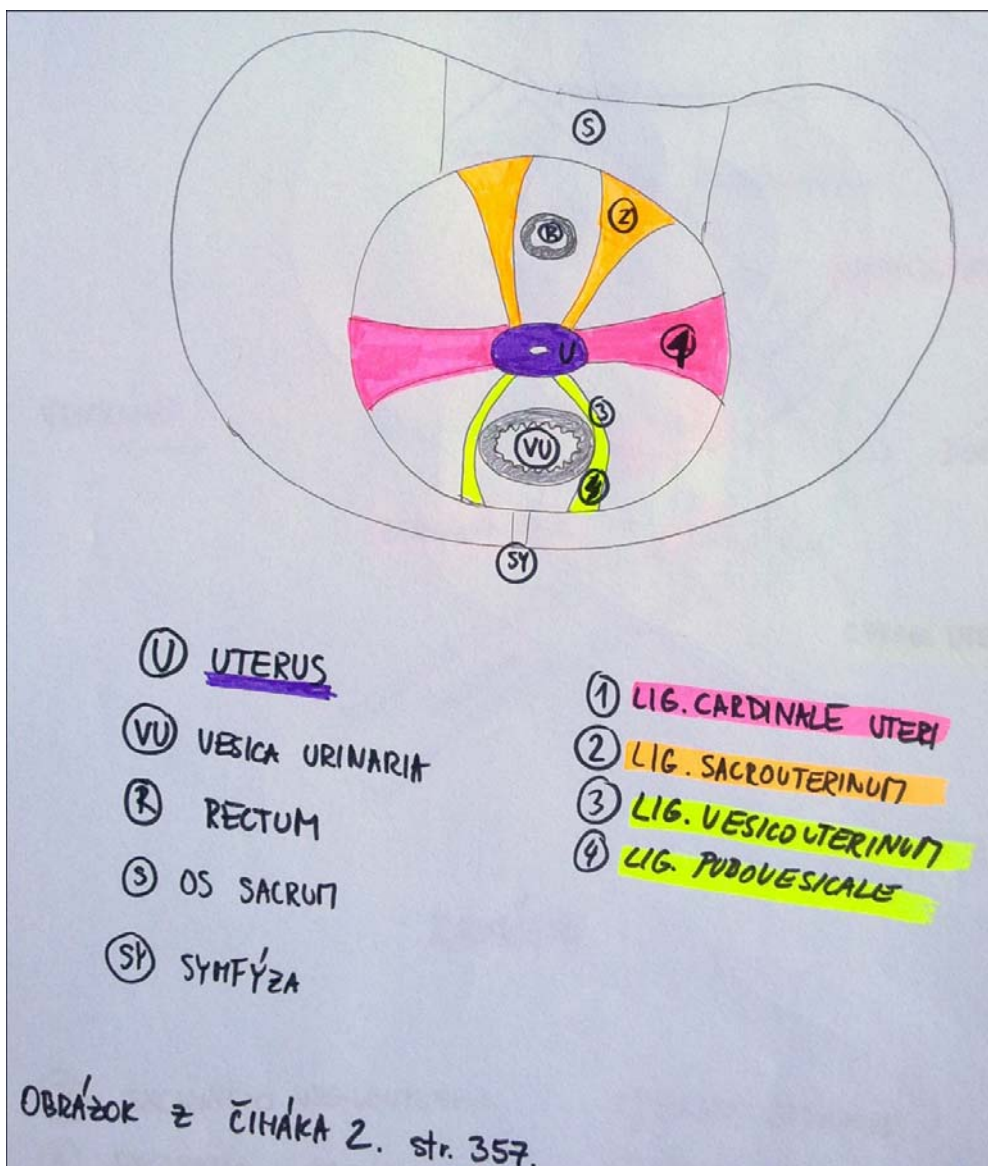 S
2
R
U
1
3
VU
4
SY
U UTERUS
VU VESICA URINARIA
R RECTUM
S OS SACRUM
SY SYMFÝZA
1 LIG. CARDINALE UTERI
2 LIG. SACROUTERINUM
3 LIG. VESICOUTERINUM
4 LIG. PUBOVESICALE
OBRÁZOK Z ČIHÁKA 2. str. 357.